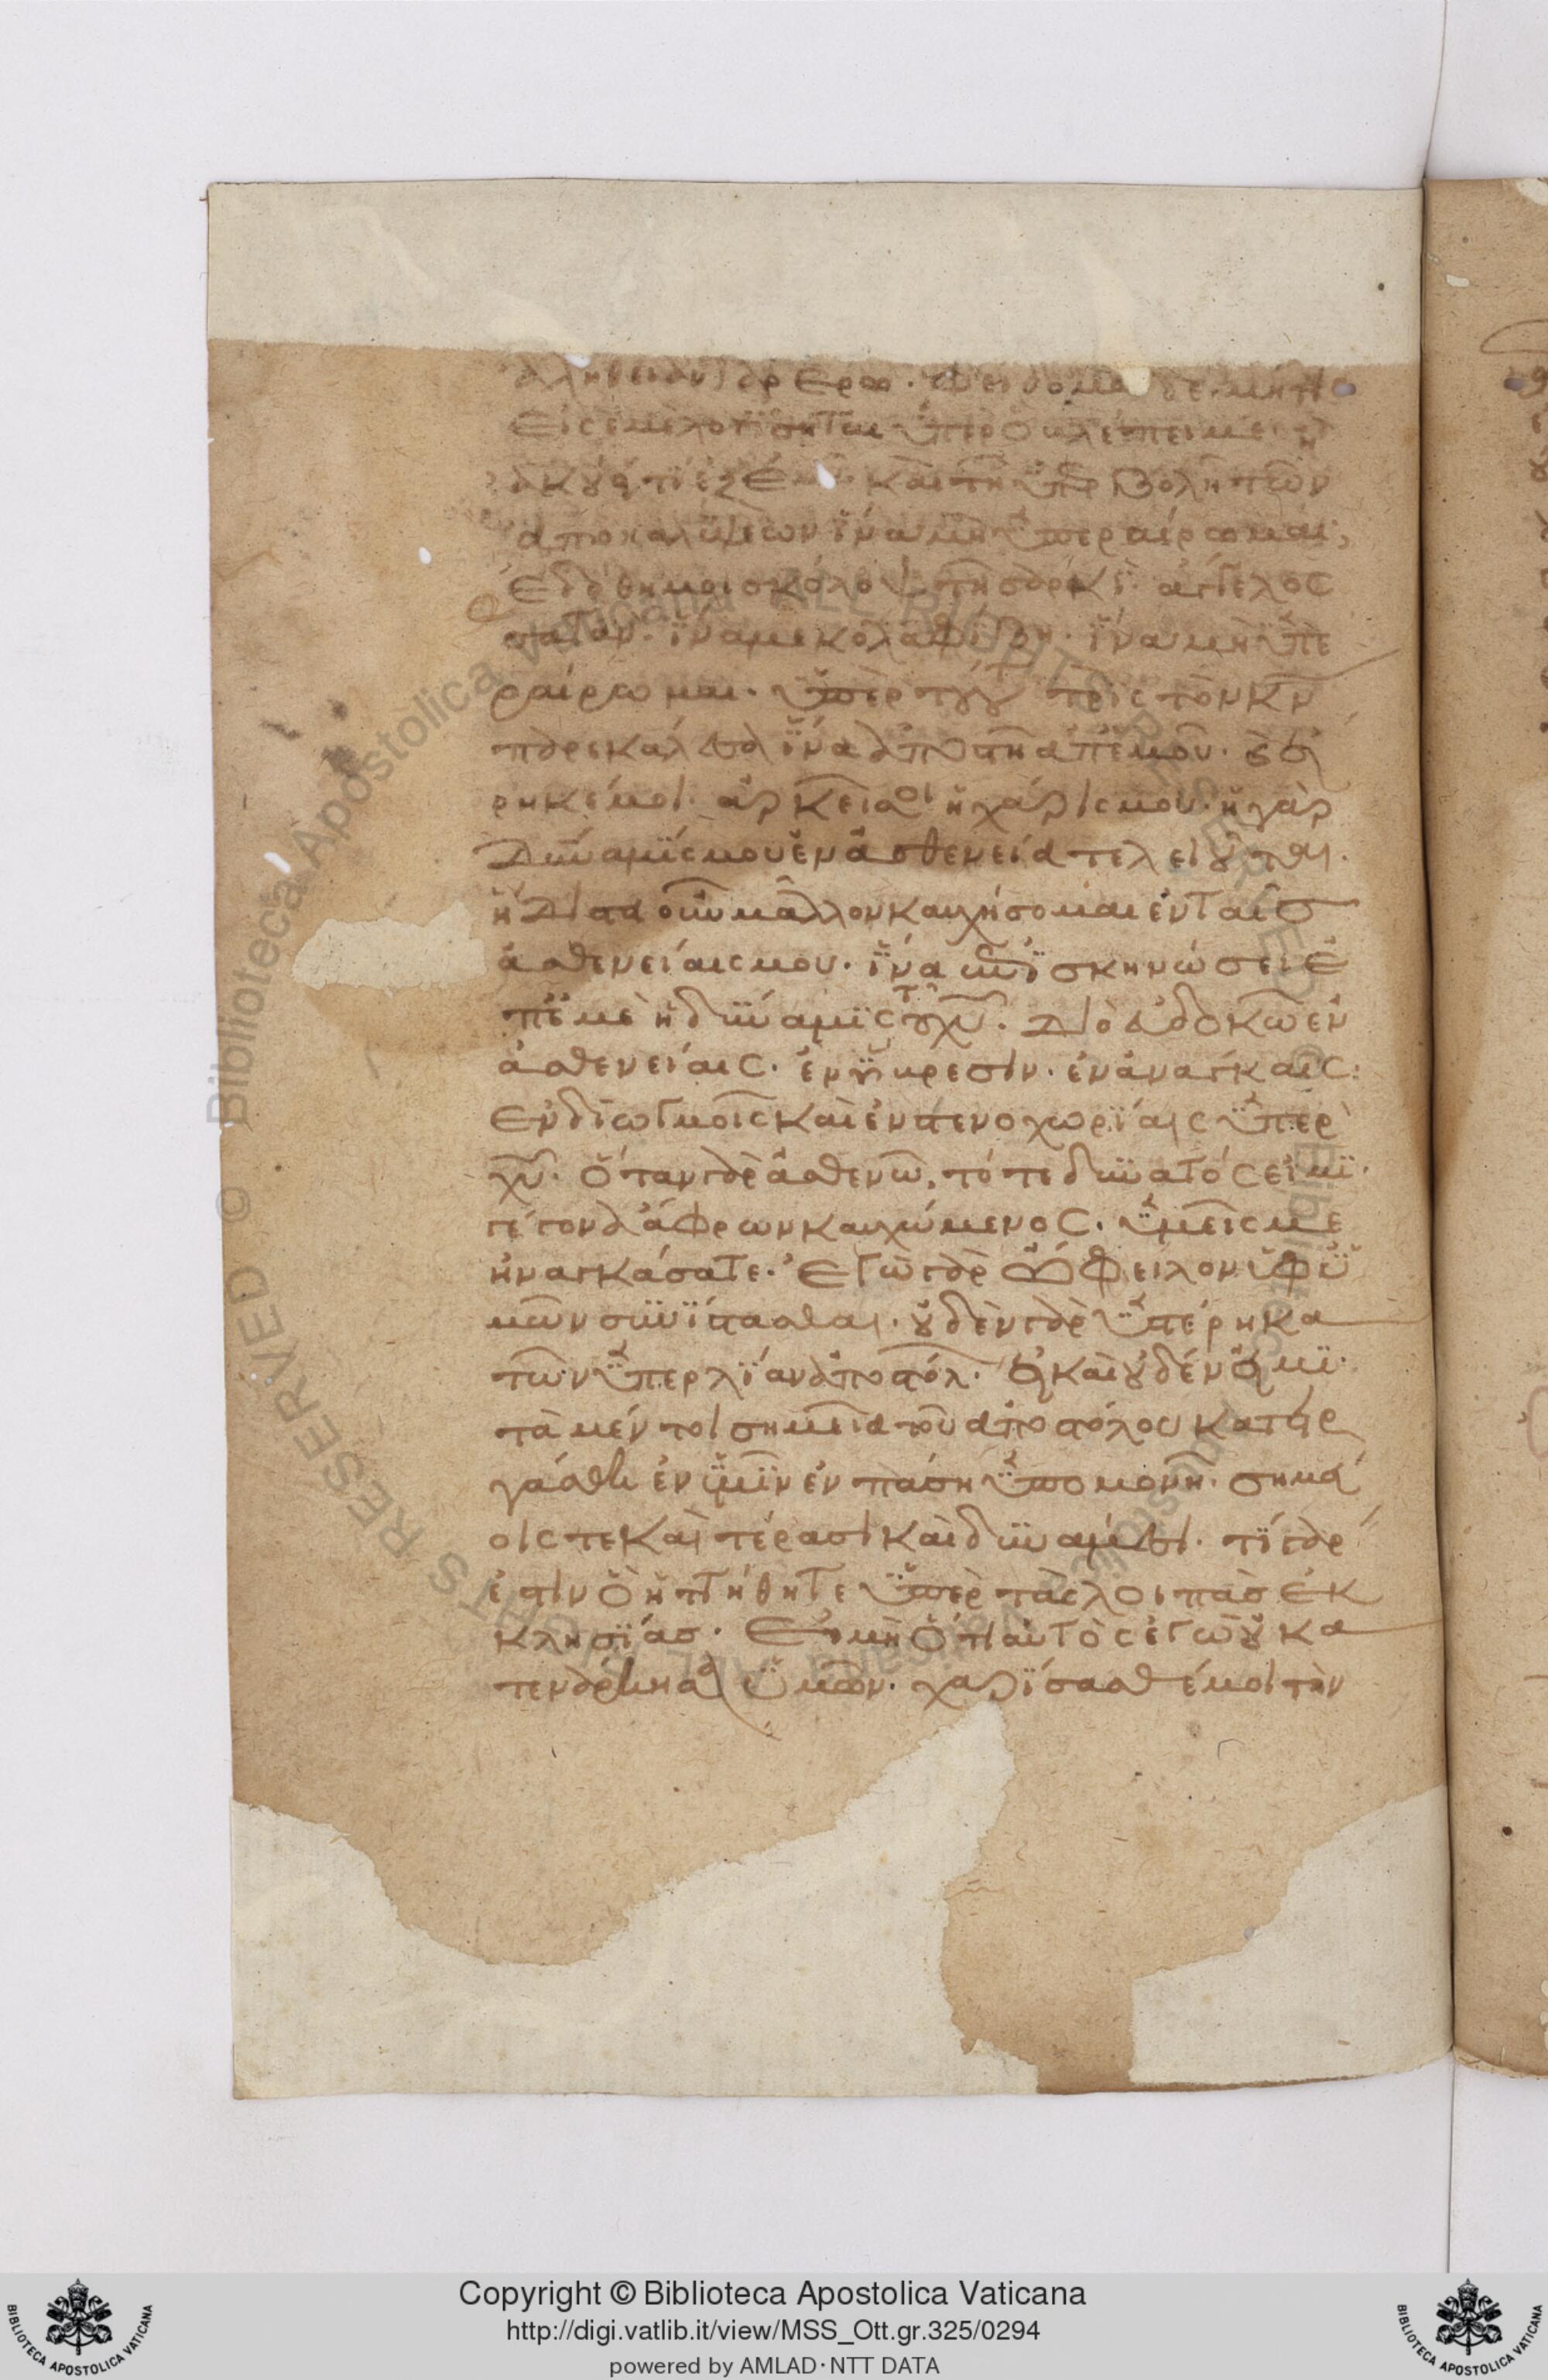 ἀλήθειαν γὰρ ἐρῶ. φείδομαι δὲ μήτις
εἰς ἐμὲ λογίσηται ὑπὲρ ὃ βλέπει με ἢ
ἀκούει τι ἐξ ἐμοῦ. καὶ τῆ ὑπερβολῆ τῶν
ἀποκαλύψεων ἵνα μὴ ὑπεραίρωμαι,
ἐδόθη μοι σκόλοψ τῆ σαρκῒ. ἄγγελος
σατὰν. ἵνα με κολαφίζη. ἵνα μὴ ὑπε
ραίρωμαι. ὑπὲρ τούτου τρὶς τὸν κν
παρεκάλεσα ἵνα ἀποστῆ ἀπ ἐμοῦ. καὶ εἴ
ρηκέ μοι. ἀρκεῖ σοι ἡ χάρις μου. ἡ γὰρ
δύναμίς μου ἐν ἀσθενεία τελειοῦται.
ἥδιστα οὖν μᾶλλον καυχήσομαι ἐν ταῖσ
ἀσθενείαις μου. ἵνα ἐπισκηνώσει ἐ
π ἐμὲ ἡ δύναμις τοῦ χυ. διὸ εὐδοκῶ ἐν
ἀσθενείαις. ἐν ὕβρεσιν. ἐν ἀνάγκαις:
ἐν διωγμοῖς καὶ ἐν στενοχωρίαις ὑπὲρ
χυ. ὅταν γὰρ ἀσθενῶ, τότε δυνατός εἰμι.
γέγονα ἄφρων καυχώμενος. ὑμεῖς με
ἠναγκάσατε. ἐγὼ γὰρ ὤφειλον ὑφ ὑ
μῶν συνίστασθαι. οὐδὲν γὰρ ὑπέρηκα
τῶν ὑπερλίαν ἀποστόλ. εἰ καὶ οὐδέν εἰμι.
τὰ μέντοι σημεῖα τοῦ ἀποστόλου κατειρ
γάσθη ἐν ὑμῖν ἐν πάση ὑπομονῆ. σημεί
οις τε καὶ τέρασι καὶ δυνάμεσι. τί γάρ
ἐστιν ὃ ἡττήθητε ὑπὲρ τὰς λοιπὰσ ἐκ
κλησίασ. εἰ μὴ ὅτι αὐτὸς ἐγὼ οὐ κα
τενάρκησα ὑμῶν. χαρίσασθέ μοι τὴν
Copyright © Biblioteca Apostolica Vaticana
http://digi.vatlib.it/view/MSS_Ott.gr.325/0294
powered by AMLAD·NTT DATA